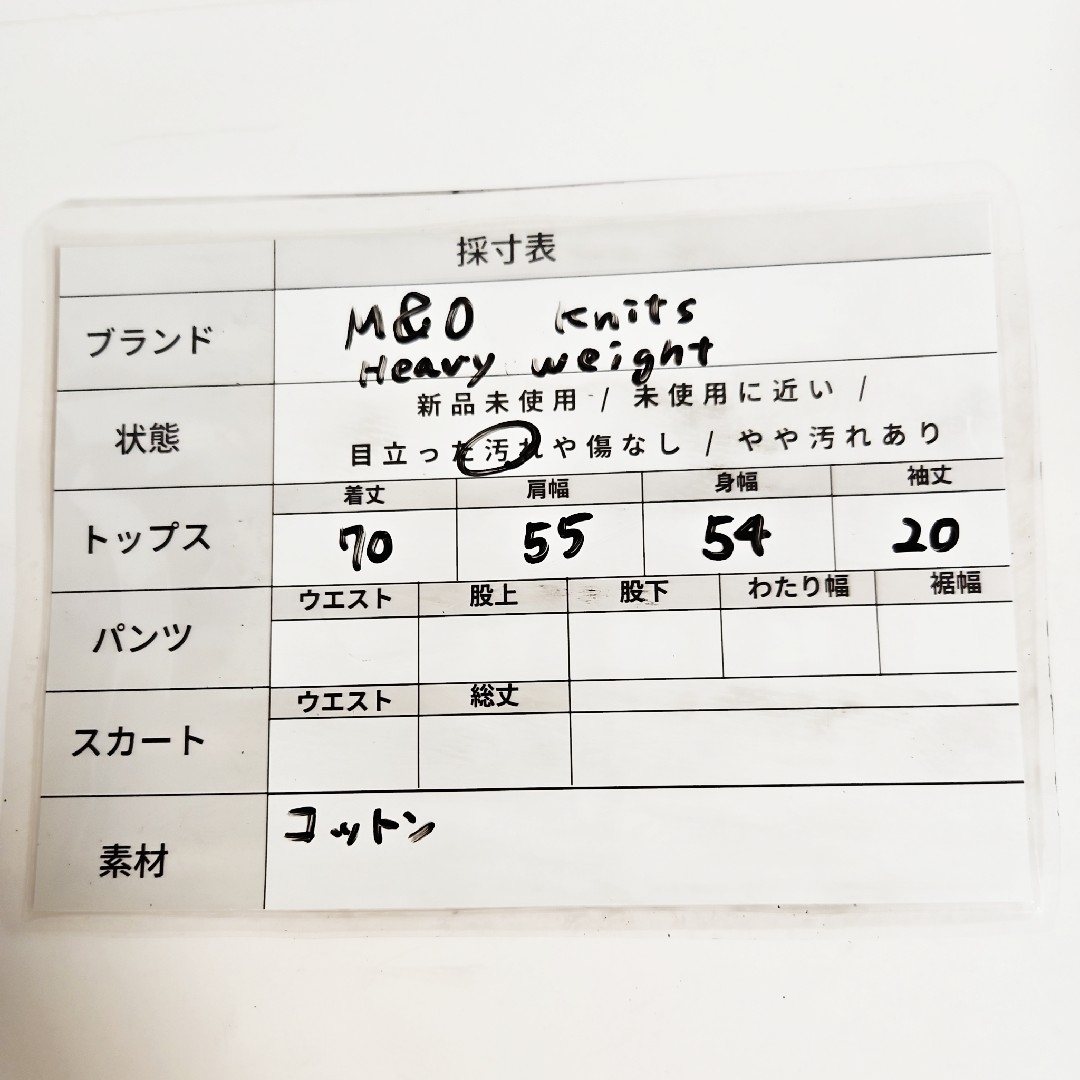 採寸表
ブランド
M&O Knits
Heavy weight
状態
新品未使用 / 未使用に近い /
目立った汚れや傷なし / やや汚れあり
トップス
着丈 肩幅 身幅 袖丈
70 55 54 20
パンツ
ウエスト 股上 股下 わたり幅 裾幅
スカート
ウエスト 総丈
素材
コットン